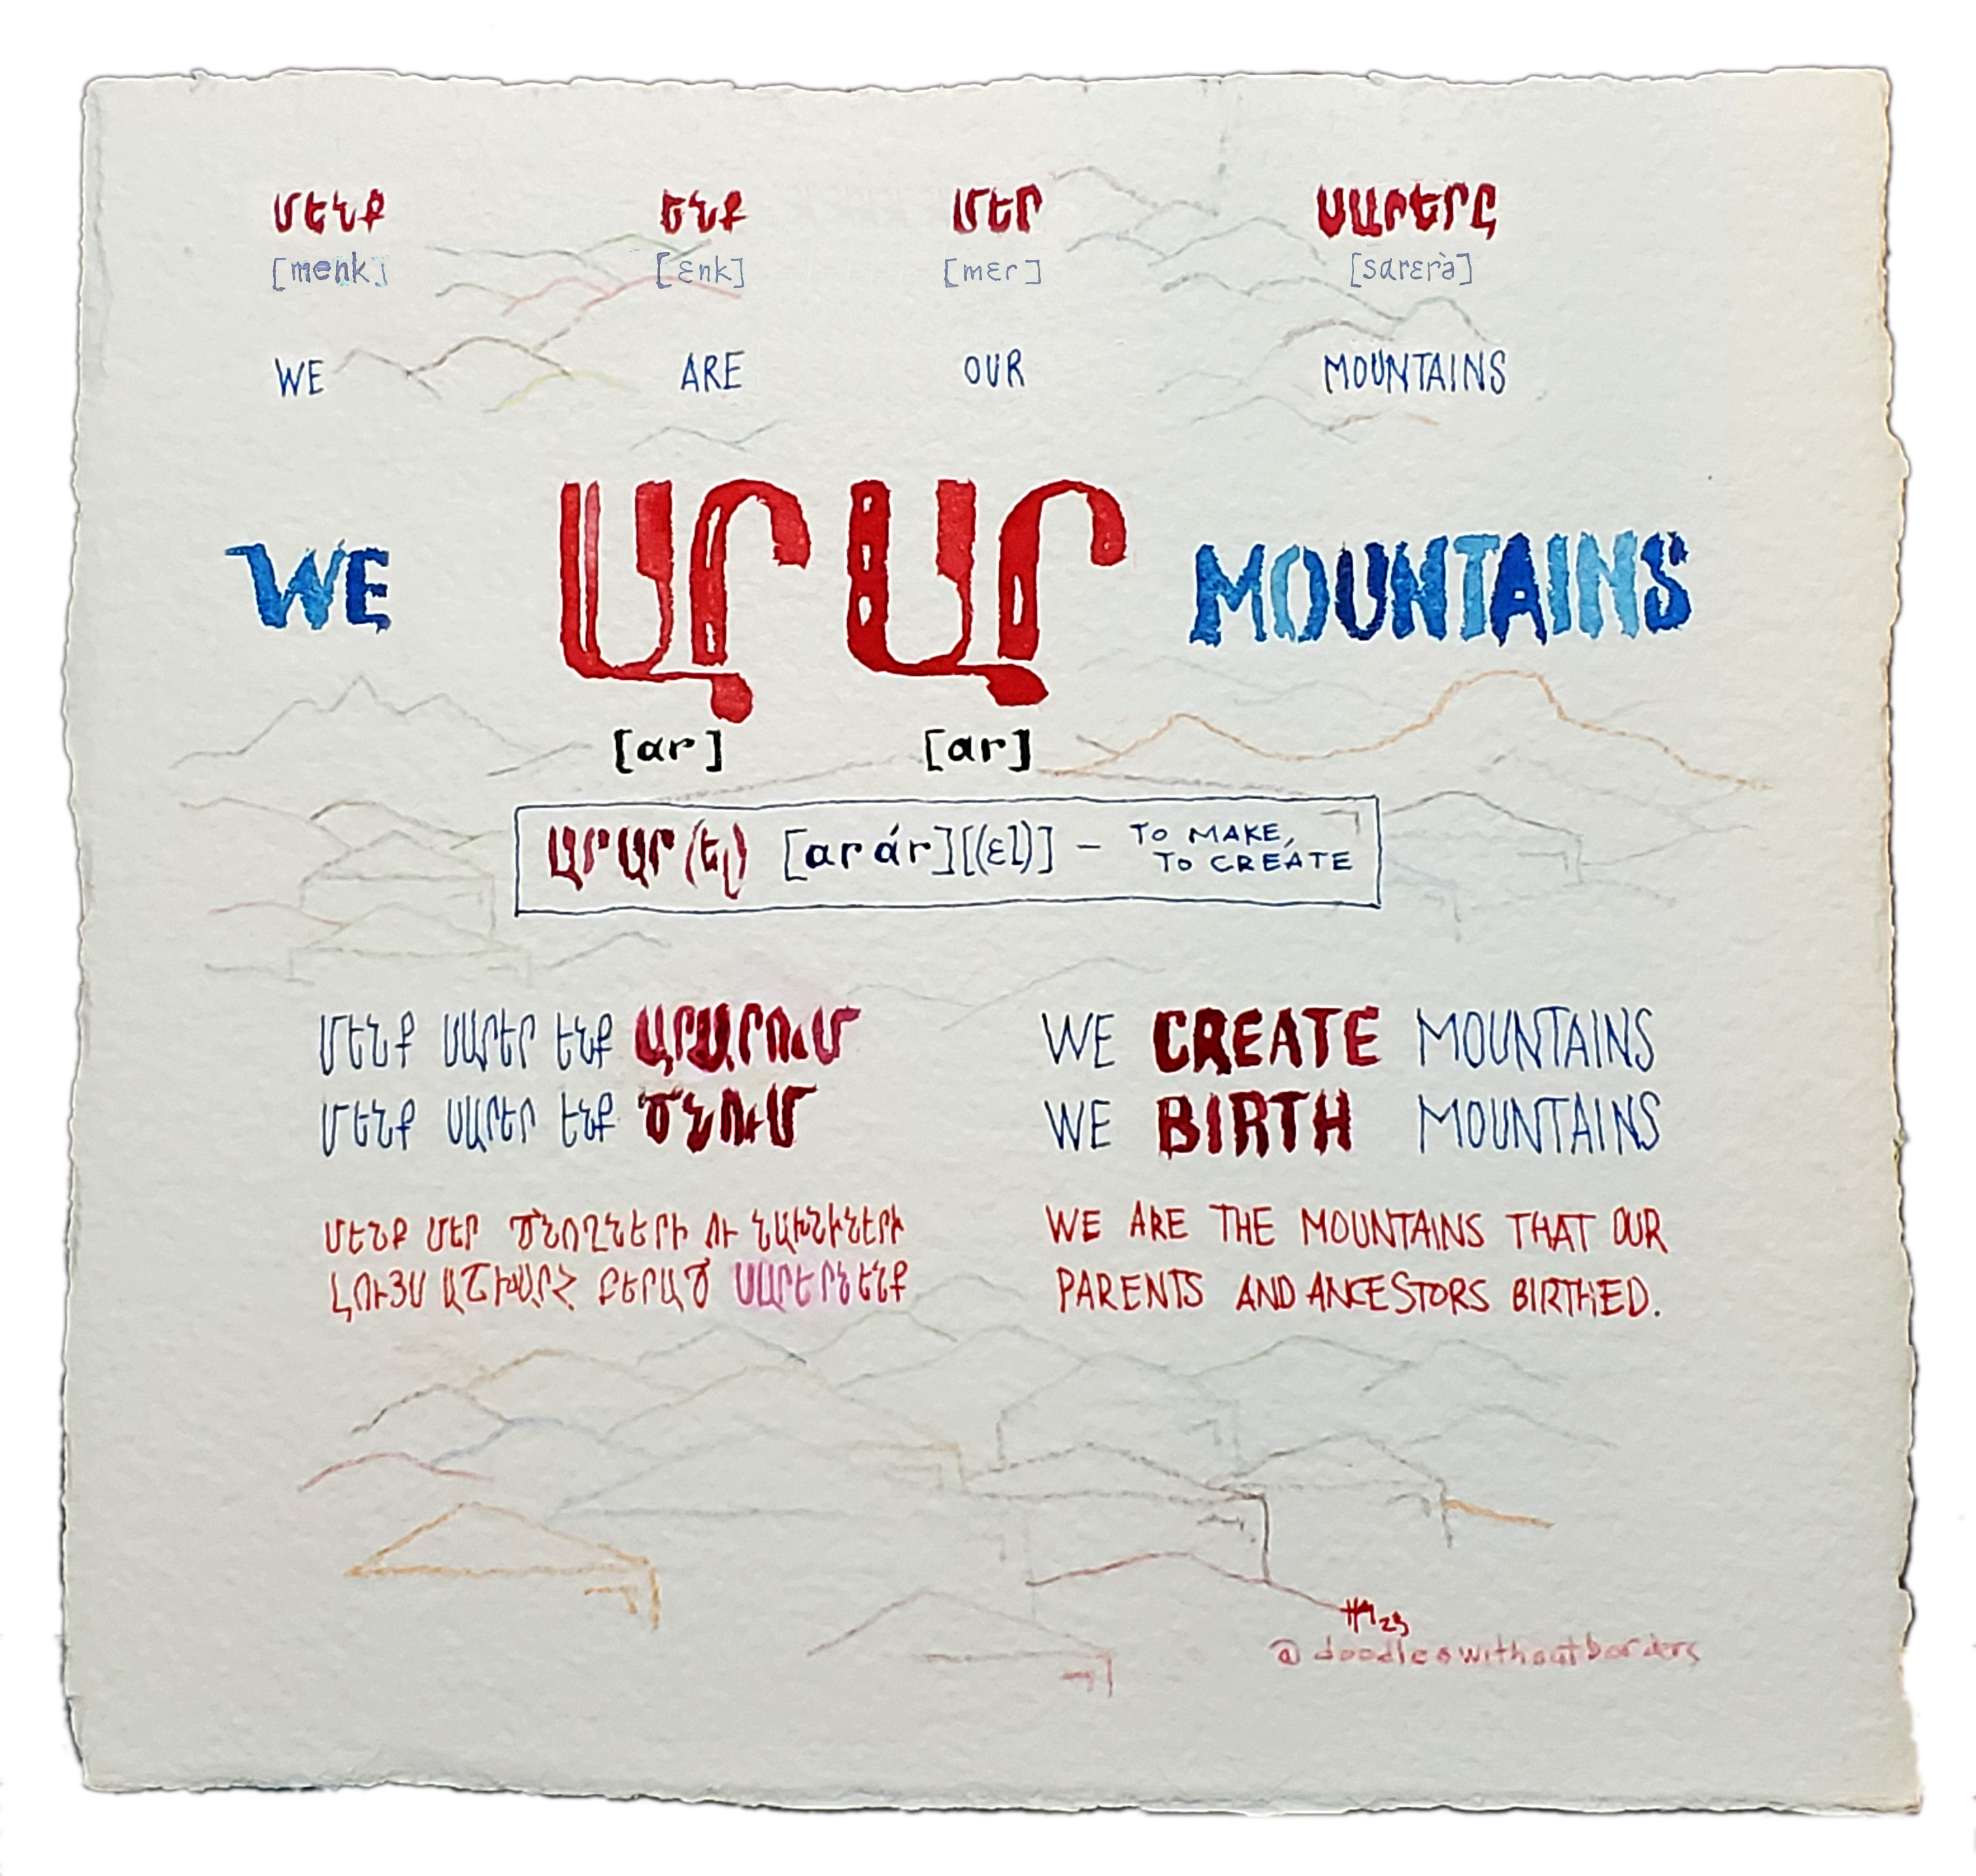 ՄԵՆՔ ԵՆՔ ՄԵՐ ՍԱՐԵՐԸ
[menk] [ɛnk] [mɛr] [sarɛrə̀]
WE ARE OUR MOUNTAINS
WE ԱՐ ԱՐ MOUNTAINS
[ar] [ar]
ԱՐԱՐ(ել) [arár][(ɛl)] – TO MAKE,
TO CREATE
ՄԵՆՔ ՍԱՐԵՐ ԵՆՔ ԱՐԱՐՈւՄ
WE CREATE MOUNTAINS
ՄԵՆՔ ՍԱՐԵՐ ԵՆՔ ԾՆՈւՄ
WE BIRTH MOUNTAINS
ՄԵՆՔ ՄԵՐ ԾՆՈՂՆԵՐԻ ՈՒ ՆԱԽՆԻՆԵՐԻ
ԼՈՒՅՍ ԱՇԽԱՐՀ ԲԵՐԱԾ ՍԱՐԵՐՆ ԵՆՔ
WE ARE THE MOUNTAINS THAT OUR
PARENTS AND ANCESTORS BIRTHED.
23
@doodleswithoutborders